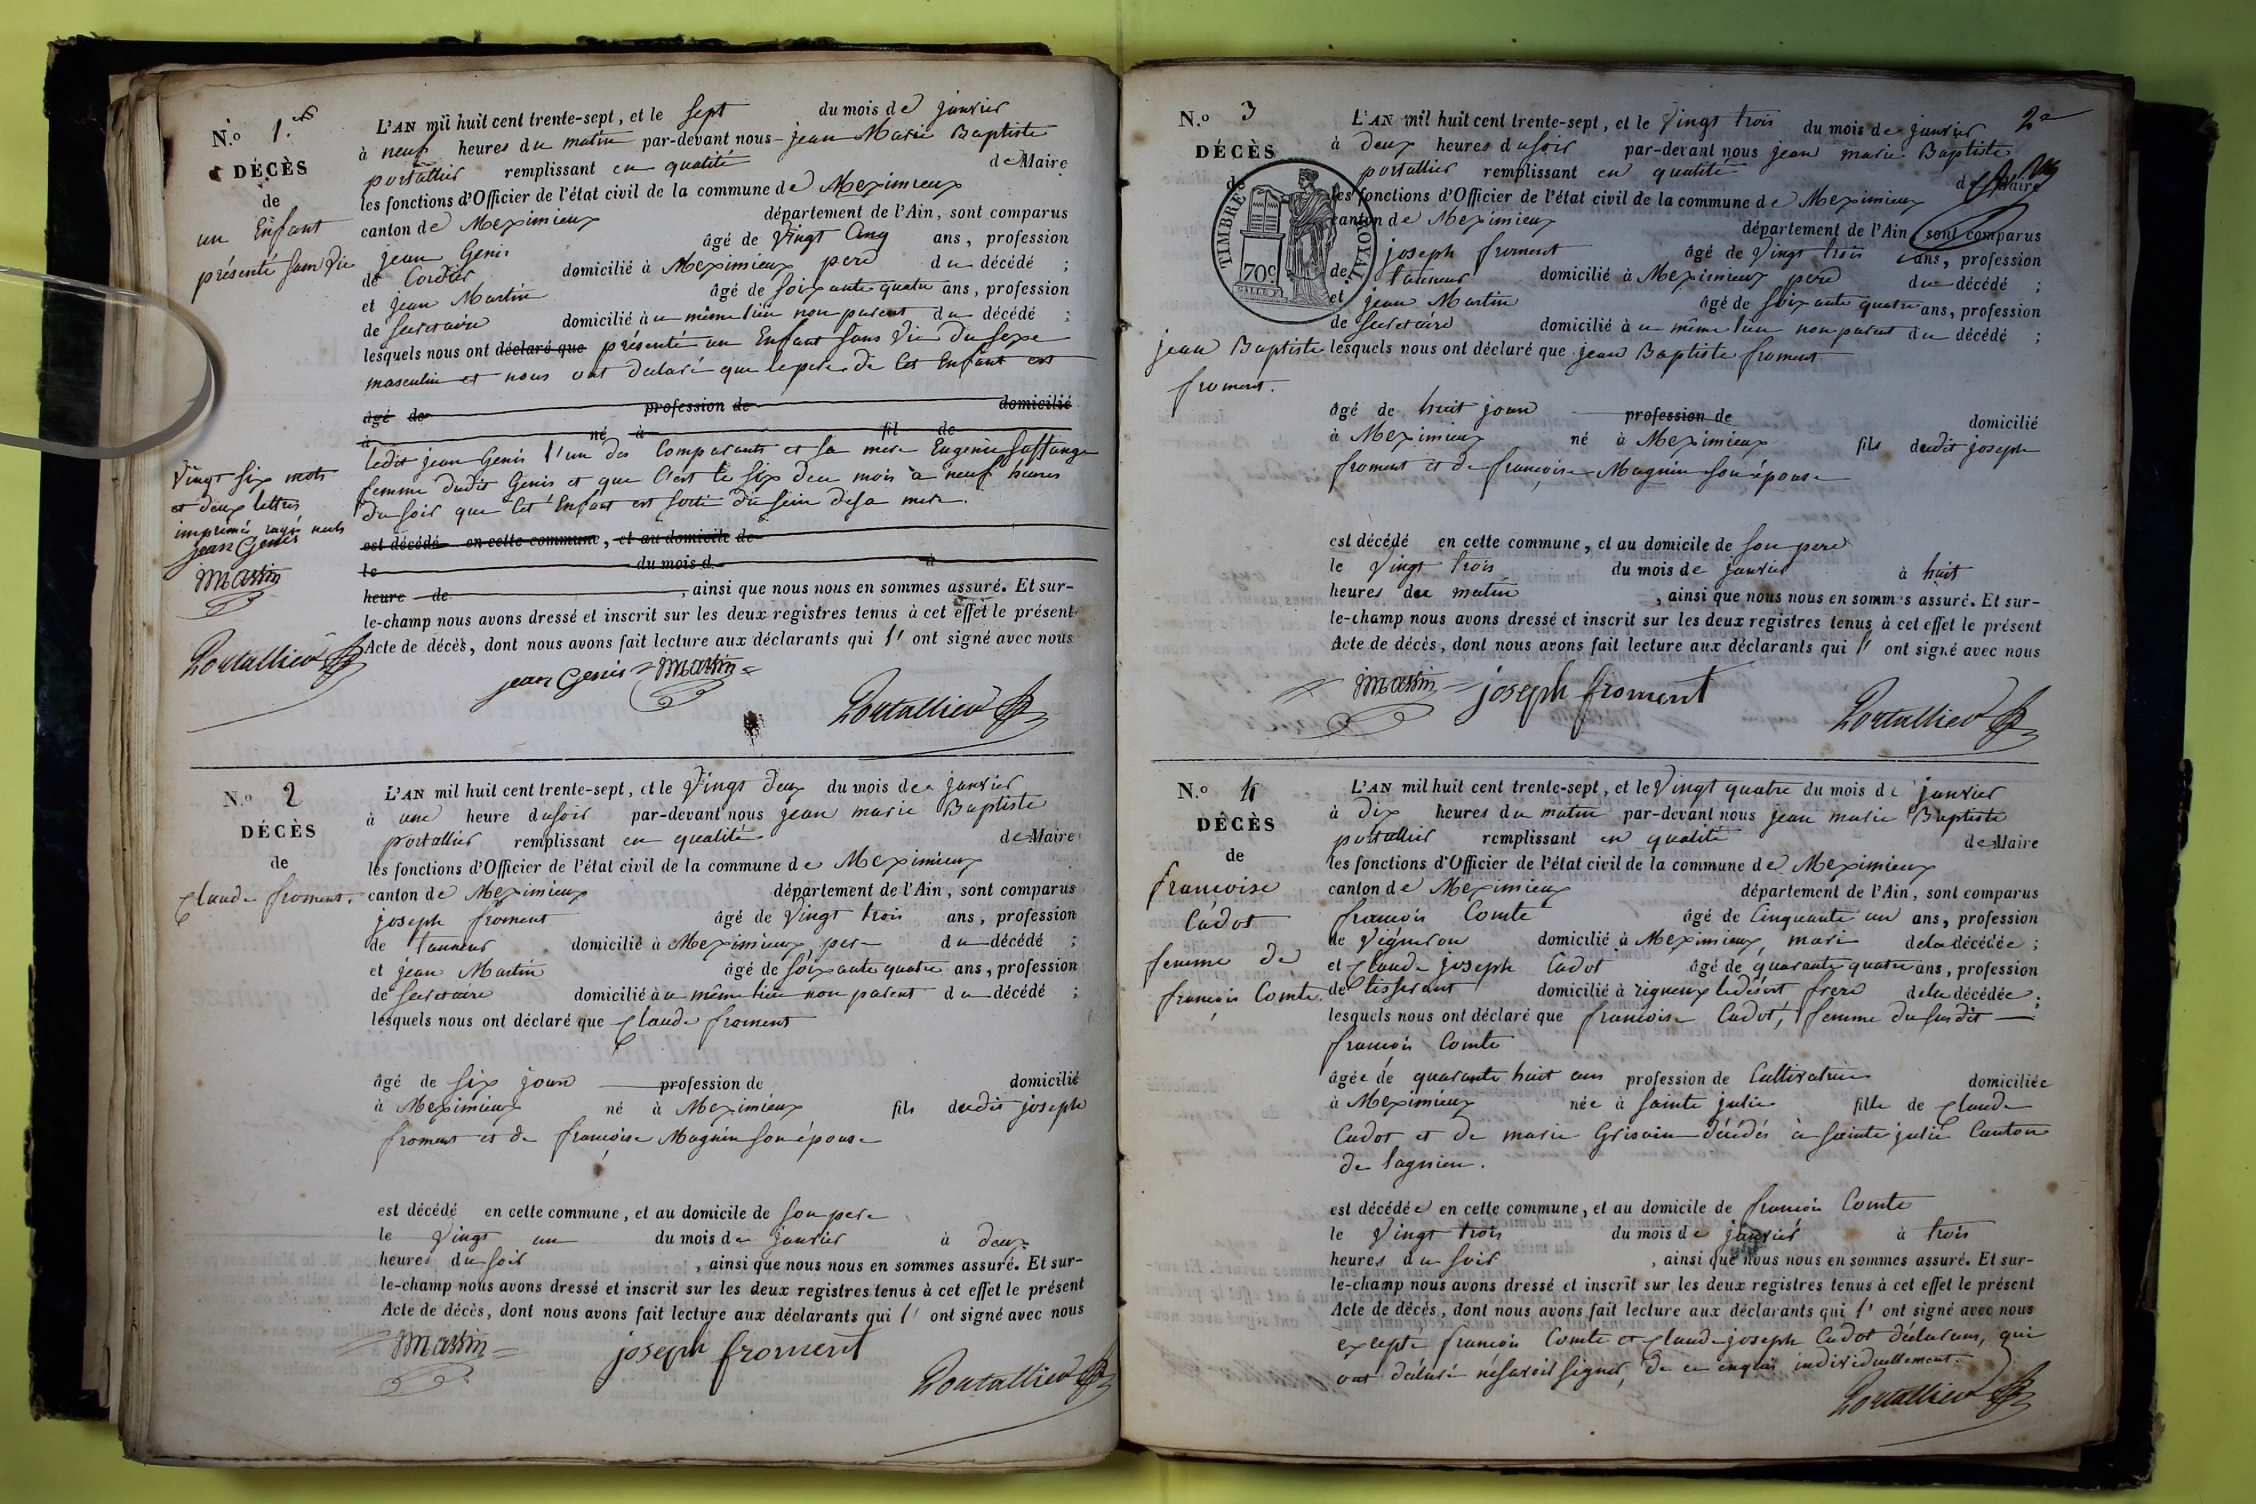 N.o 1.er
DÉCÈS
de
un Enfant
présenté sans vie
L'AN mil huit cent trente-sept, et le sept du mois de janvier
à neuf heures du matin par-devant nous jean Marie Baptiste
portallier remplissant en qualité de Maire
les fonctions d'Officier de l'état civil de la commune de Meximieux
canton de Meximieux département de l'Ain, sont comparus
jean Genis âgé de vingt cinq ans, profession
de Cordier domicilié à Meximieux pere du décédé ;
et jean Martin âgé de soixante quatre ans, profession
de secretaire domicilié à u même lieu non parent du décédé ;
lesquels nous ont déclaré que présenté un Enfant sans vie du sexe
masculin et nous ont déclaré que le pere de cet Enfant est
âgé de profession de domicilié
à né à fil de
ledit jean Genis l'un des comparants et sa mere Eugenie
femme dudit Genis et que c'est le six du mois à neuf heures
du soir que cet Enfant est sorti du sein de sa mere.
est décédé en cette commune, et au domicile de
le du mois d à
heure de , ainsi que nous nous en sommes assuré. Et sur-
le-champ nous avons dressé et inscrit sur les deux registres tenus à cet effet le présent
Acte de décès, dont nous avons fait lecture aux déclarants qui l' ont signé avec nous
vingt six mots
et deux lettres
imprimés rayés nuls
jean Genis
jmartin
Portallier
jean Genis jmartin
Portallier
N.o 2
DÉCÈS
de
Claude froment.
L'AN mil huit cent trente-sept, et le vingt deux du mois de janvier
à une heure du soir par-devant nous jean marie Baptiste
portallier remplissant en qualité de Maire
les fonctions d'Officier de l'état civil de la commune de Meximieux
canton de Meximieux département de l'Ain, sont comparus
joseph froment âgé de vingt trois ans, profession
de tanneur domicilié à Meximieux pere du décédé ;
et jean Martin âgé de soixante quatre ans, profession
de secretaire domicilié à u même lieu non parent du décédé ;
lesquels nous ont déclaré que Claude froment
âgé de six jours profession de domicilié
à Meximieux né à Meximieux fils dudit joseph
froment et de françoise Magnin son épouse
est décédé en cette commune, et au domicile de son pere
le vingt un du mois de janvier à deux
heures du soir , ainsi que nous nous en sommes assuré. Et sur-
le-champ nous avons dressé et inscrit sur les deux registres tenus à cet effet le présent
Acte de décès, dont nous avons fait lecture aux déclarants qui l' ont signé avec nous
jmartin joseph froment
Portallier
2e
N.o 3
DÉCÈS
de
jean Baptiste
froment.
TIMBRE ROYAL
70c
L'AN mil huit cent trente-sept, et le vingt trois du mois de janvier
à deux heures du soir par-devant nous jean marie Baptiste
portallier remplissant en qualité de Maire
les fonctions d'Officier de l'état civil de la commune de Meximieux
canton de Meximieux département de l'Ain, sont comparus
joseph froment âgé de vingt trois ans, profession
de tanneur domicilié à Meximieux pere du décédé ;
et jean Martin âgé de soixante quatre ans, profession
de secretaire domicilié à u même lieu non parent du décédé ;
lesquels nous ont déclaré que jean Baptiste froment
âgé de huit jours profession de domicilié
à Meximieux né à Meximieux fils dudit joseph
froment et de françoise Magnin son épouse
est décédé en cette commune, et au domicile de son pere
le vingt trois du mois de janvier à huit
heures du matin , ainsi que nous nous en sommes assuré. Et sur-
le-champ nous avons dressé et inscrit sur les deux registres tenus à cet effet le présent
Acte de décès, dont nous avons fait lecture aux déclarants qui l' ont signé avec nous
jmartin joseph froment
Portallier
N.o 4
DÉCÈS
de
francoise
Cadot
femme de
françois Comte.
L'AN mil huit cent trente-sept, et le vingt quatre du mois de janvier
à dix heures du matin par-devant nous jean marie Baptiste
portallier remplissant en qualité de Maire
les fonctions d'Officier de l'état civil de la commune de Meximieux
canton de Meximieux département de l'Ain, sont comparus
françois Comte âgé de cinquante un ans, profession
de vigneron domicilié à Meximieux, mari de la décédée ;
et Claude joseph Cadot âgé de quarante quatre ans, profession
de tisserant domicilié à rigneux le désert frere de la décédée ;
lesquels nous ont déclaré que françoise Cadot, femme du susdit
françois Comte
âgée de quarante huit ans profession de cultivatrice domiciliée
à Meximieux née à sainte julie fille de Claude
Cadot et de marie Grisoin décédés à sainte julie Canton
de lagnieu.
est décédée en cette commune, et au domicile de françois Comte
le vingt trois du mois de janvier à trois
heures du soir , ainsi que nous nous en sommes assuré. Et sur-
le-champ nous avons dressé et inscrit sur les deux registres tenus à cet effet le présent
Acte de décès, dont nous avons fait lecture aux déclarants qui l' ont signé avec nous
excepté françois Comte et Claude joseph Cadot déclarans, qui
ont déclaré ne savoir signer, de ce enquis individuellement.
Portallier